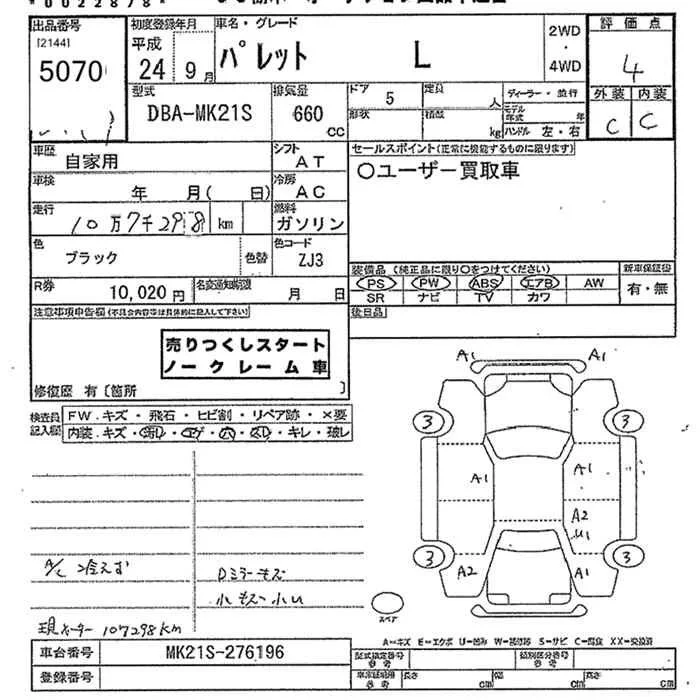 *0022878*
出品番号 [2144] 5070
初度登録年月 平成 24年 9月
車名・グレード パレット L
2WD・4WD
評価点 4
外装 C 内装 C
型式 DBA-MK21S
排気量 660 CC
ドア 5
形状
定員 人
積載 kg
ディーラー・並行
モデル年式 年
ハンドル 左・右
車歴 自家用
シフト AT
車検 年 月( 日)
冷房 AC
走行 10万7千298 km
燃料 ガソリン
色 ブラック 色替
色コード ZJ3
R券 10,020円
名変通知期限 月 日
セールスポイント(正常に機能するものに限ります)
○ユーザー買取車
装備品(純正品に限り○をつけてください)
PS PW ABS エアB AW
SR ナビ TV カワ
新車保証書 有・無
後日品
注意事項申告欄(不具合内容等は具体的に記入して下さい)
売りつくしスタート
ノークレーム車
修復歴 有〔箇所 〕
検査員記入欄
FW.キズ・飛石・ヒビ割・リペア跡・×要
内装.キズ・汚れ・コゲ・穴・スレ・キレ・破レ
A1 A1
3 3
A1 A1
A2
U1
3 3
A2 A1
A/C 冷えず
Dミラーキズ
小キズ・小凹
現メーター 107298km
スペア
A=キズ E=エクボ U=凹み W=補修跡 S=サビ C=腐食 XX=交換済
車台番号 MK21S-276196
登録番号
型式指定番号 参考
類別区分番号 参考
車庫証明用 参考 長さ cm 幅 cm 高さ cm